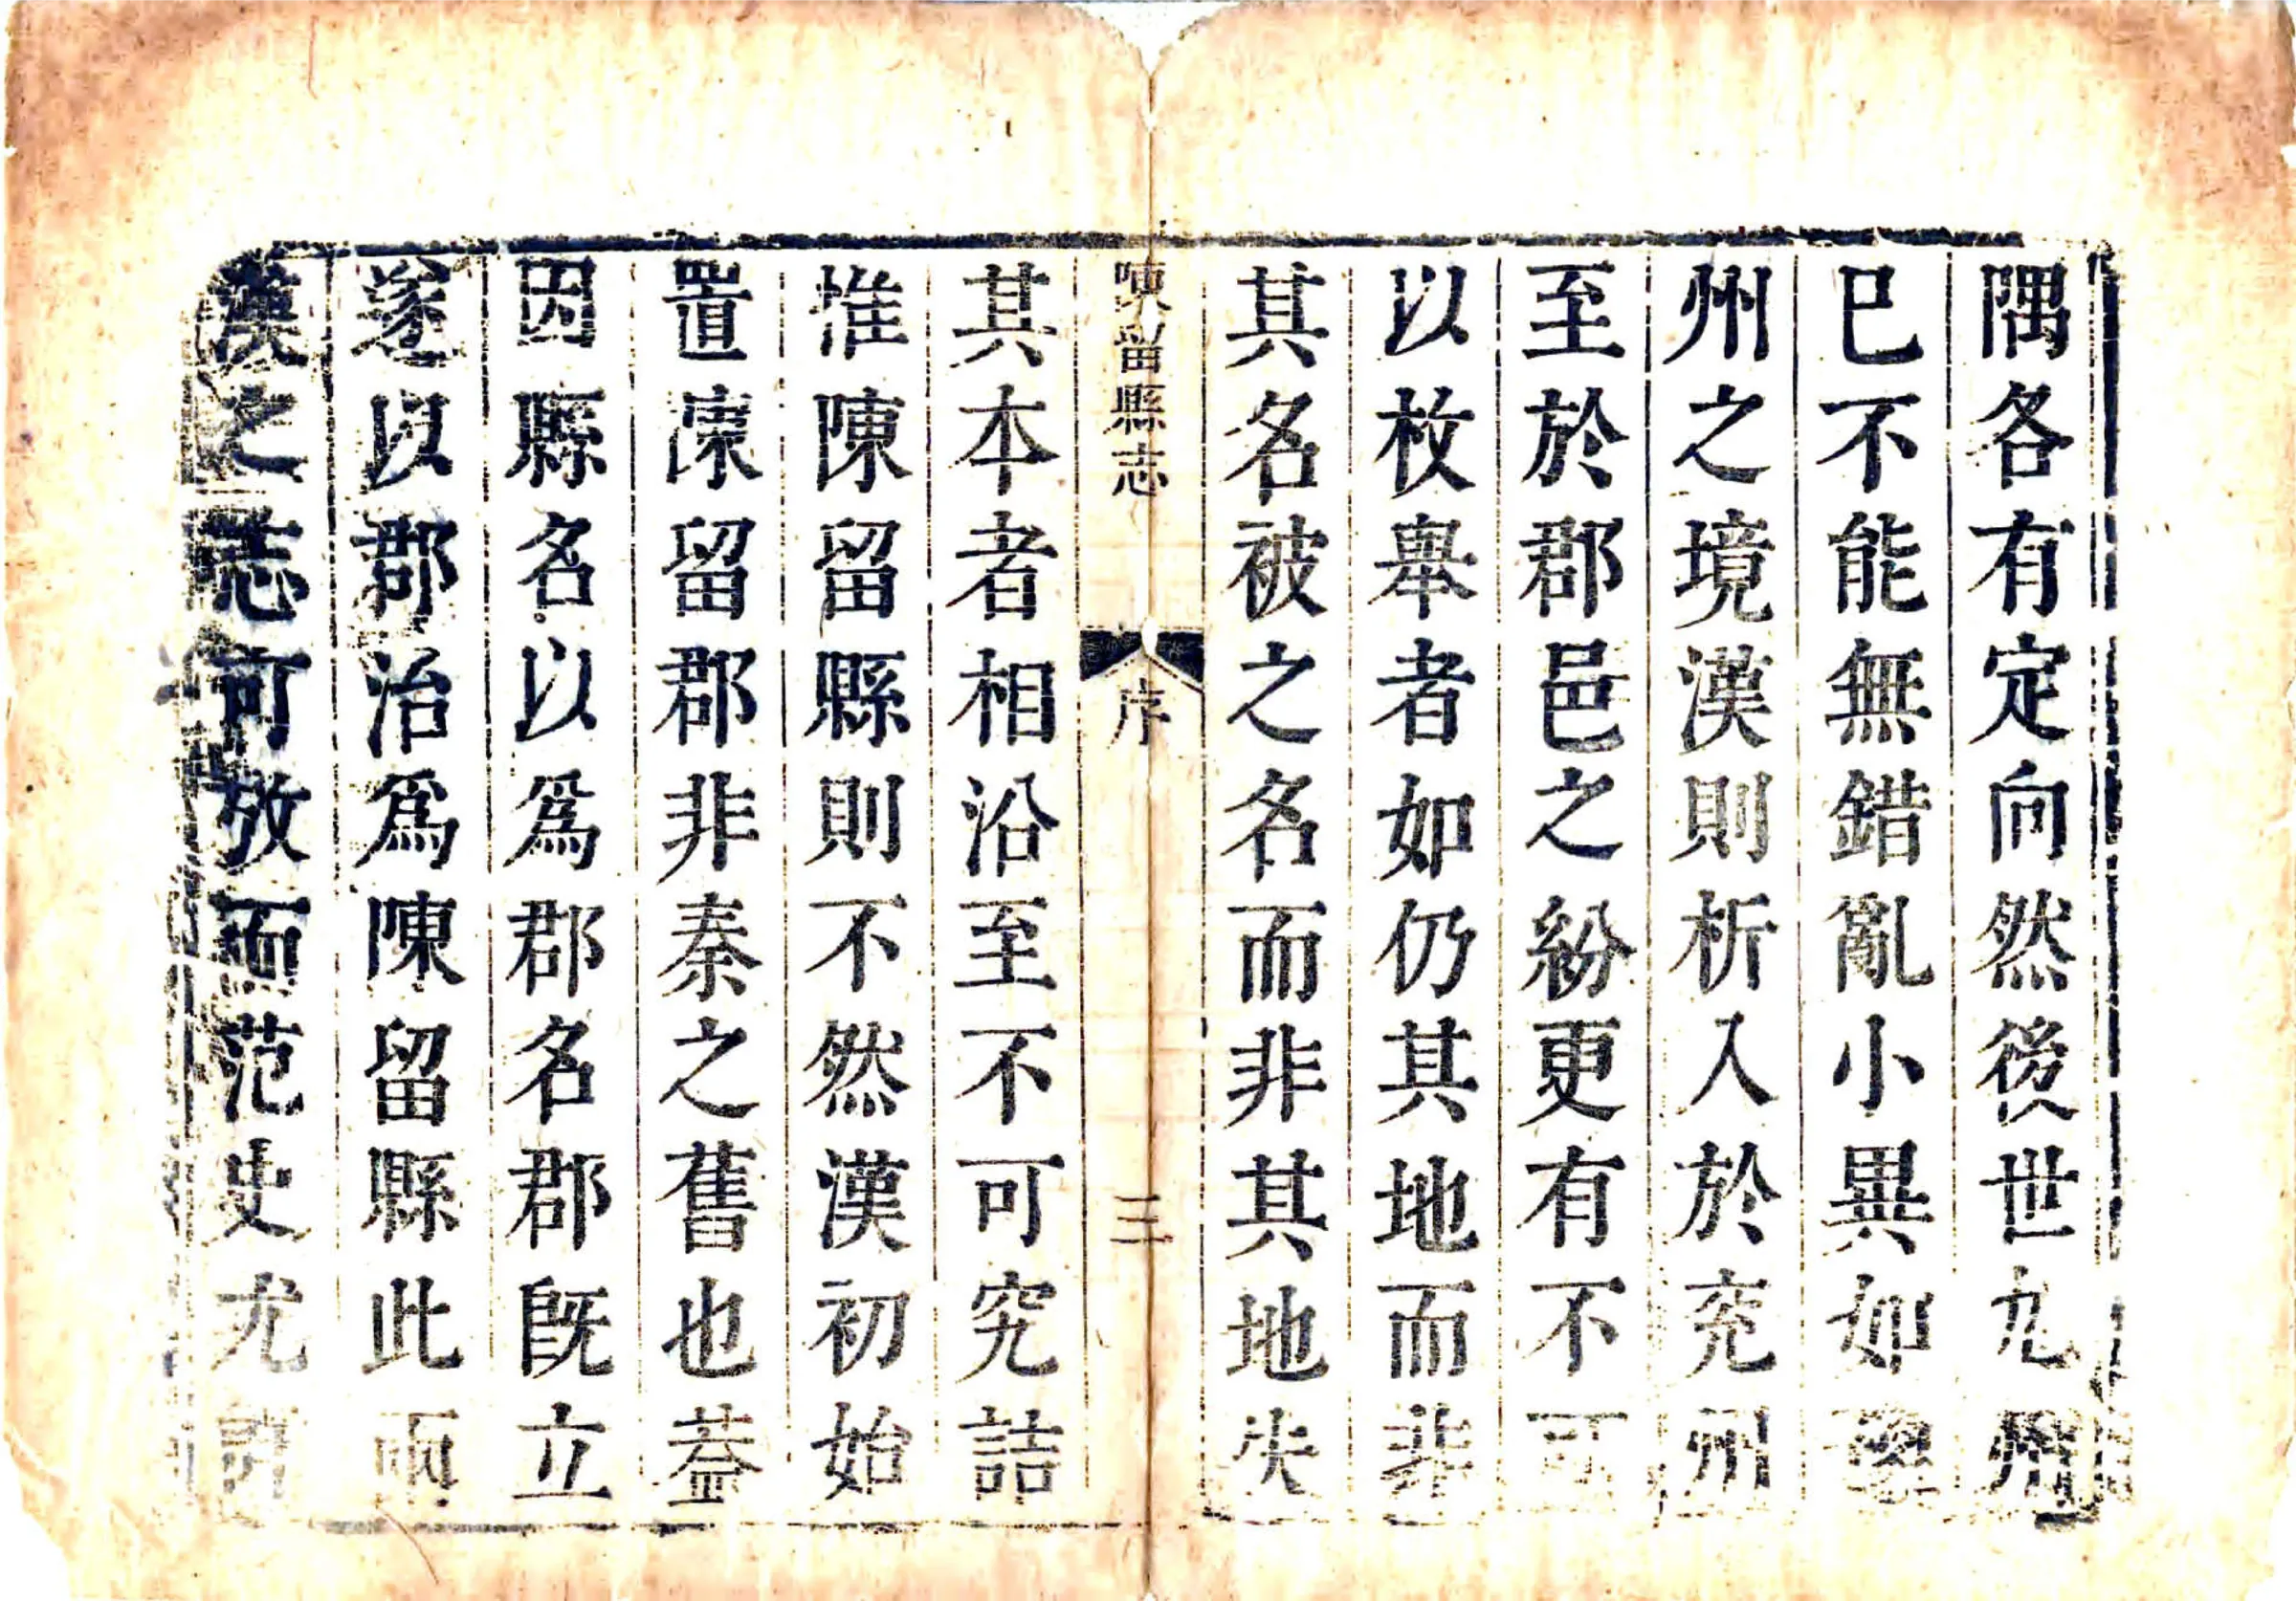 隅各有定向然後世九州
已不能無錯亂小異如豫
州之境漢則析入於兖州
至於郡邑之紛更有不可
以枚舉者如仍其地而非
其名被之名而非其地失
陳留縣志
序
三
其本者相沿至不可究詰
惟陳留縣則不然漢初始
置陳留郡非秦之舊也葢
因縣名以爲郡名郡旣立
遂以郡治爲陳留縣此兩
漢之志可攷而范史尤